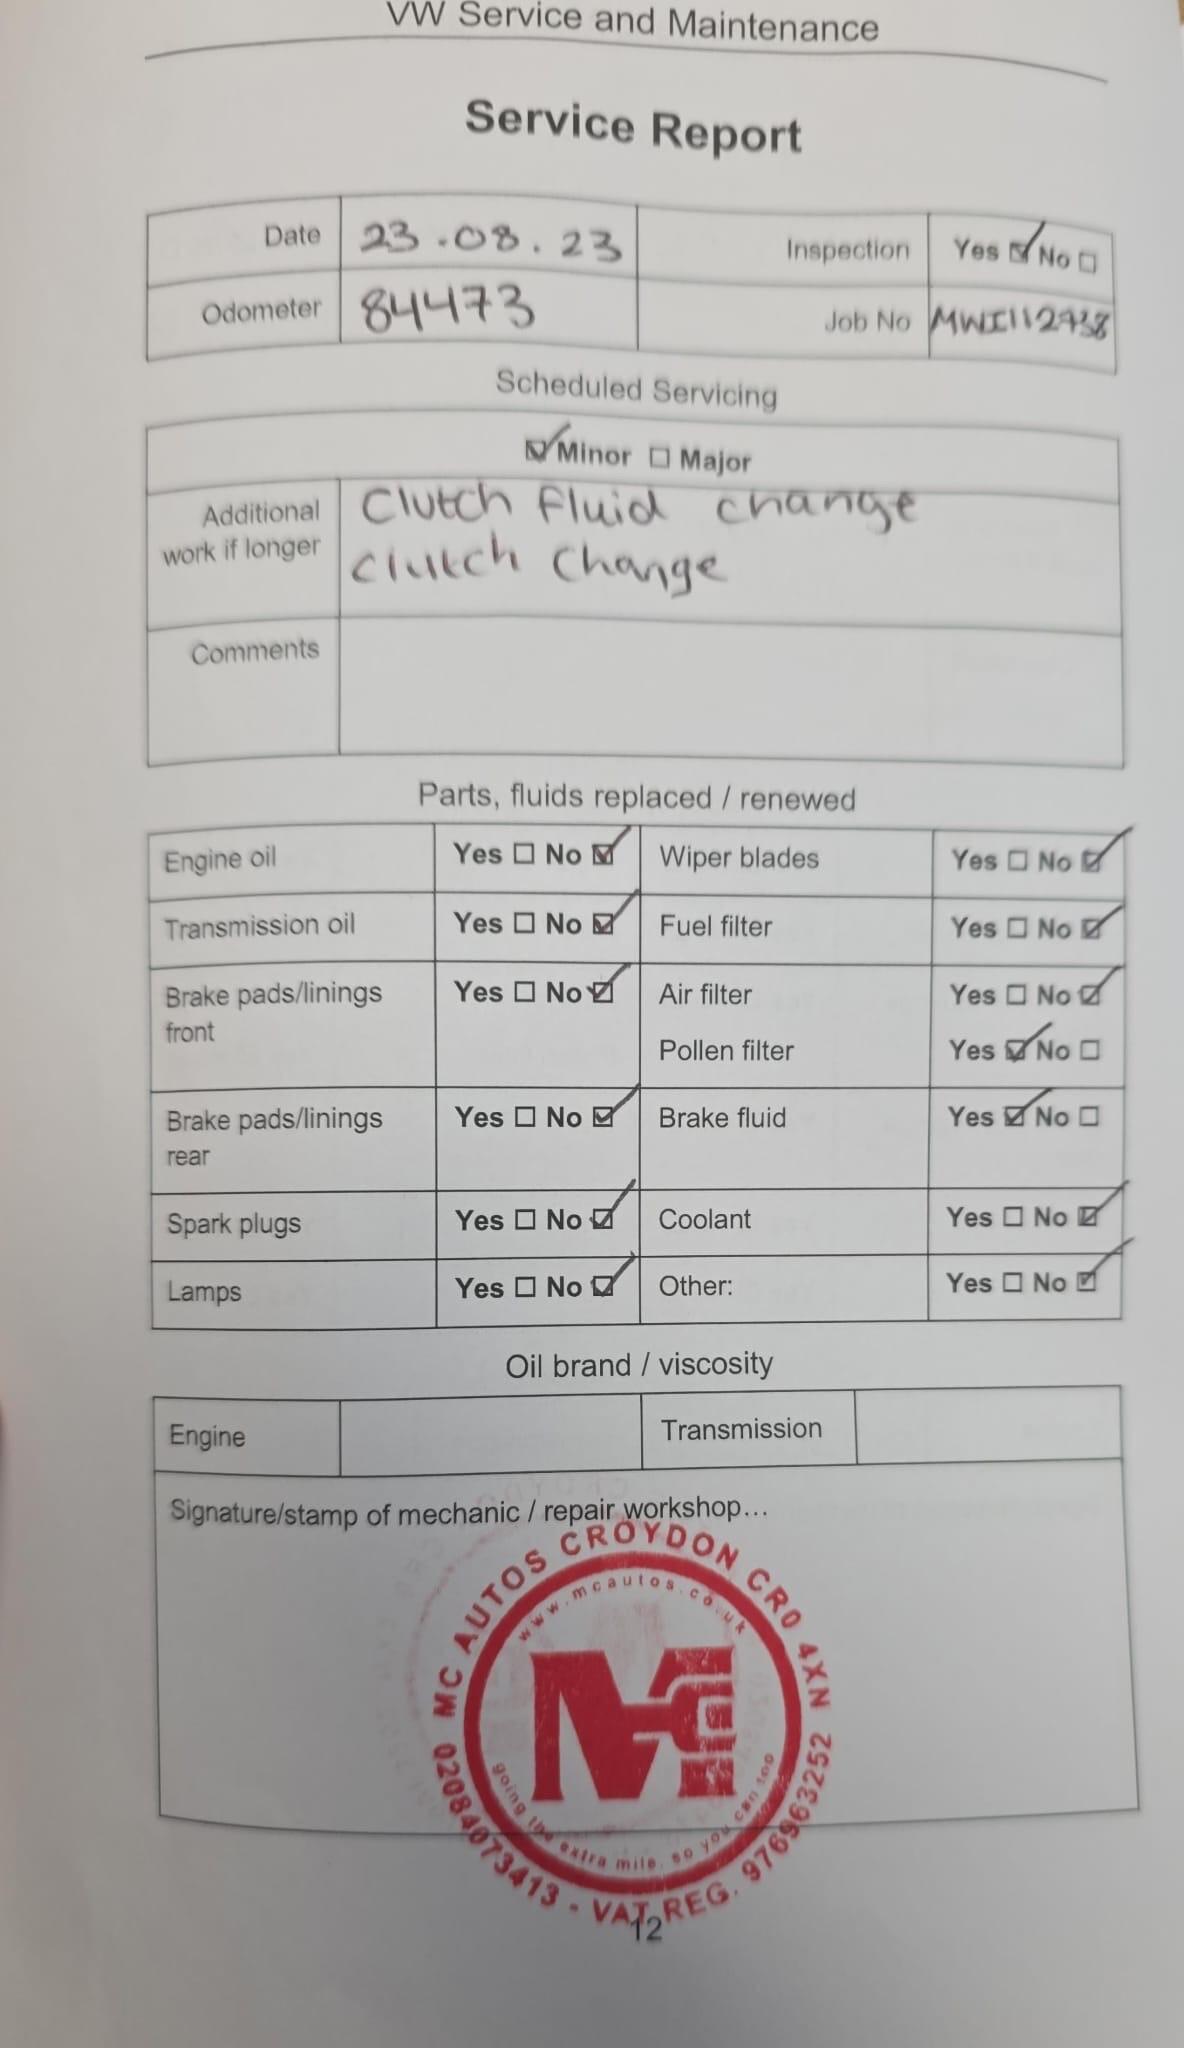 VW Service and Maintenance
Service Report
Date 23.08.23 Inspection Yes ☑ No ☐
Odometer 84473 Job No MWI112738
Scheduled Servicing
☑ Minor ☐ Major
Additional work if longer
Clutch fluid change
Clutch Change
Comments
Parts, fluids replaced / renewed
Engine oil Yes ☐ No ☑ Wiper blades Yes ☐ No ☑
Transmission oil Yes ☐ No ☑ Fuel filter Yes ☐ No ☑
Brake pads/linings front Yes ☐ No ☑ Air filter Yes ☐ No ☑
Pollen filter Yes ☑ No ☐
Brake pads/linings rear Yes ☐ No ☑ Brake fluid Yes ☑ No ☐
Spark plugs Yes ☐ No ☑ Coolant Yes ☐ No ☑
Lamps Yes ☐ No ☑ Other: Yes ☐ No ☑
Oil brand / viscosity
Engine Transmission
Signature/stamp of mechanic / repair workshop...
MC AUTOS CROYDON CR0 4XN
www.mcautos.co.uk
MC
going the extra mile, so you can too
02084073413 - VAT REG. 976963252
12